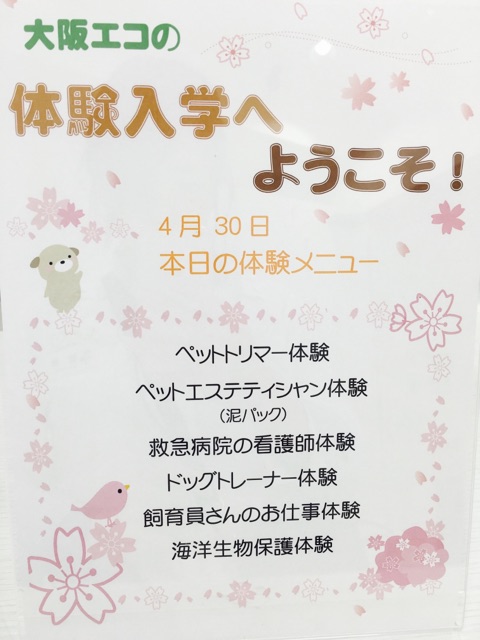 大阪エコの
体験入学へ
ようこそ！
4月 30日
本日の体験メニュー
ペットトリマー体験
ペットエステティシャン体験
（泥パック）
救急病院の看護師体験
ドッグトレーナー体験
飼育員さんのお仕事体験
海洋生物保護体験